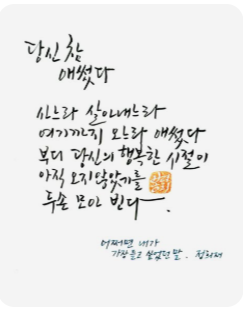 당신 참
애썼다
사느라 살아내느라
여기까지 오느라 애썼다
부디 당신의 행복한 시절이
아직 오지 않았기를
두손 모아 빈다.
어쩌면 내가
가장 듣고 싶었던 말. 정희재